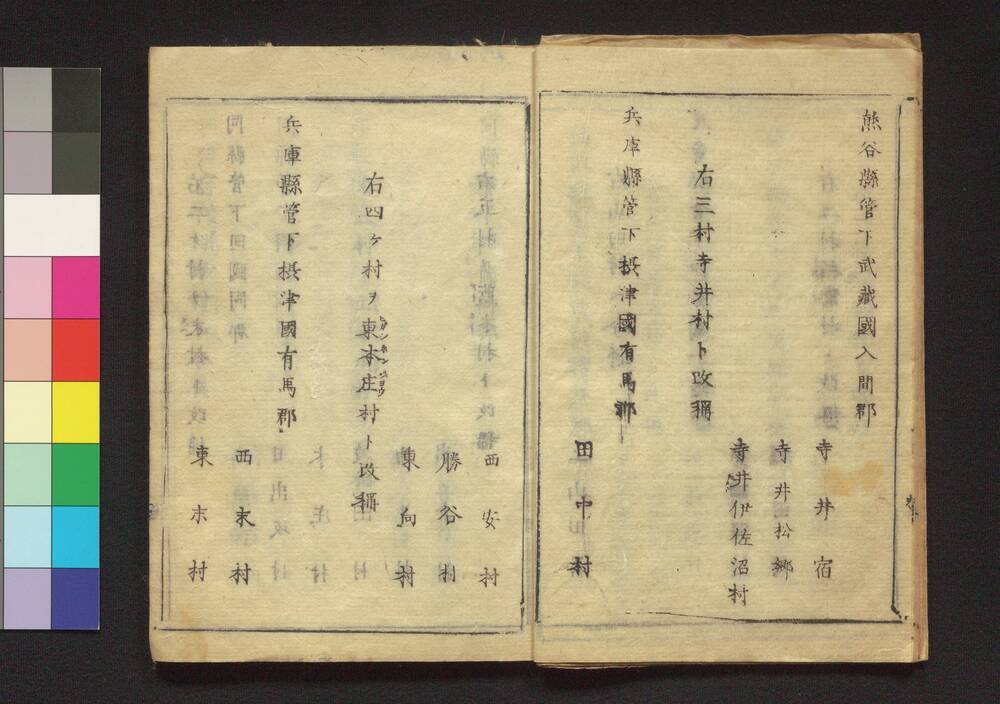 熊谷縣管下武藏國入間郡
寺井宿
寺井松郷
寺井伊佐沼村
右三村寺井村ト改稱
兵庫縣管下摂津國有馬郡
田中村
西安村
勝谷村
東向村
右四ケ村ヲ東本庄村ト改稱
兵庫縣管下摂津國有馬郡
西末村
東末村